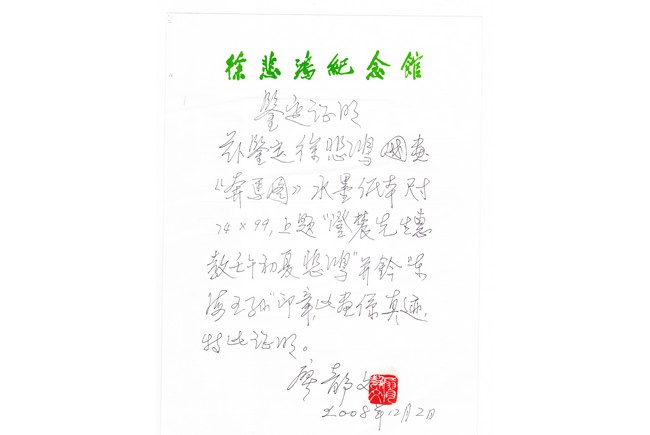 徐悲鸿紀念館
鉴定证明
兹鉴定徐悲鸿国画
《奔马图》水墨纸本尺寸
74×99,上题“澄農先生惠
教壬午初夏悲鸿”并鈐“东
海王孙”印章,此画係真迹,
特此证明。
廖静文
2008年12月2日